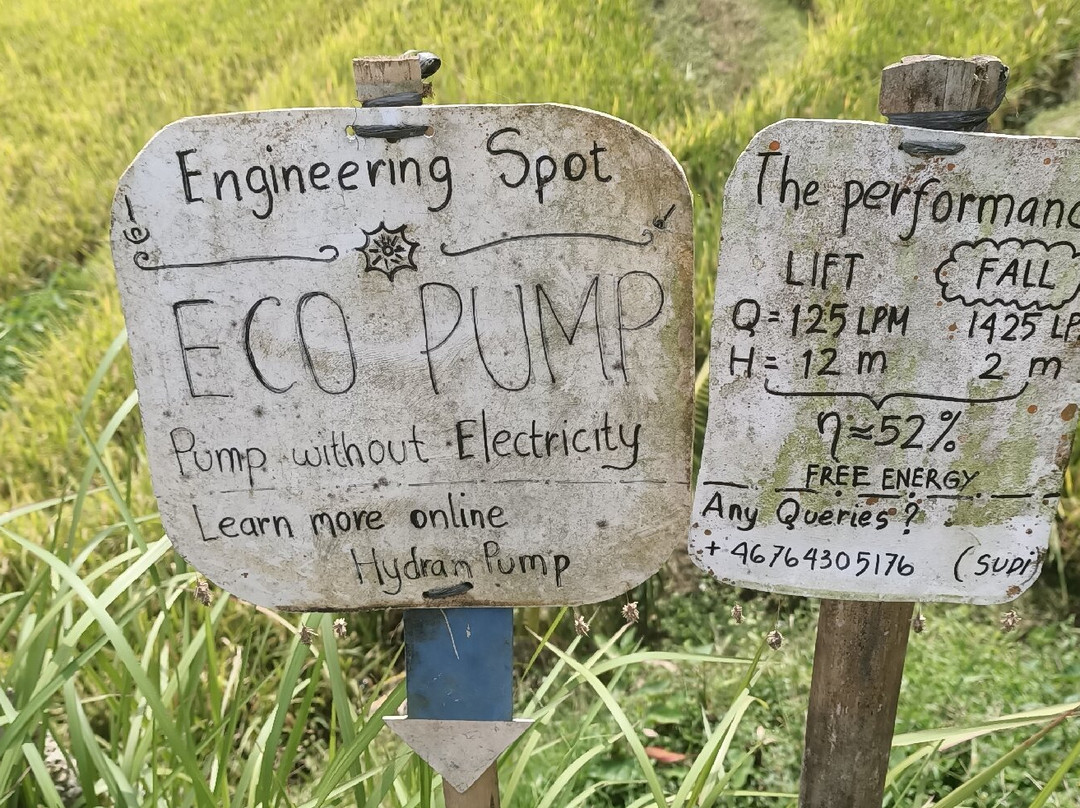 Engineering Spot
ECO PUMP
Pump without Electricity
Learn more online
Hydram Pump
The performanc
LIFT FALL
Q = 125 LPM 1425 LP
H = 12 m 2 m
η ≈ 52%
FREE ENERGY
Any Queries?
+ 46764305176 (SUDI